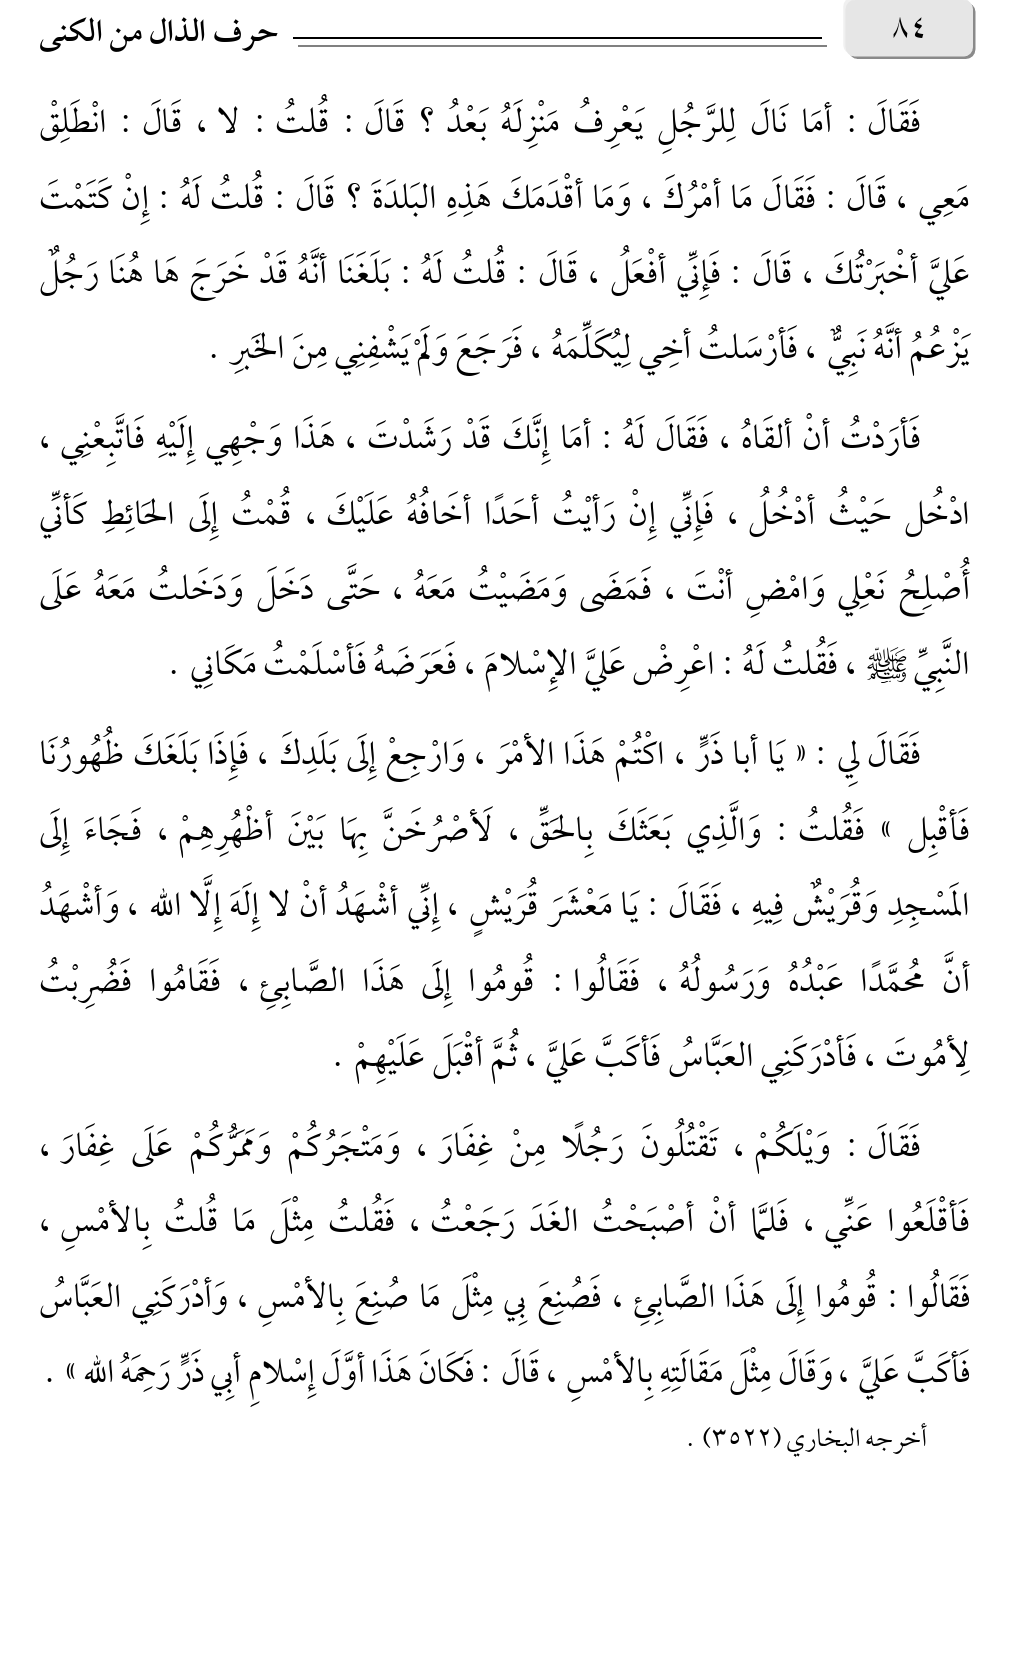 ٨٤ حرف الذال من الكنى
فَقَالَ : أمَا نَالَ لِلرَّجُلِ يَعْرِفُ مَنْزِلَهُ بَعْدُ ؟ قَالَ : قُلتُ : لا ، قَالَ : انْطَلِقْ
مَعِي ، قَالَ : فَقَالَ مَا أمْرُكَ ، وَمَا أقْدَمَكَ هَذِهِ البَلدَةَ ؟ قَالَ : قُلتُ لَهُ : إِنْ كَتَمْتَ
عَليَّ أخْبَرْتُكَ ، قَالَ : فَإِنِّي أفْعَلُ ، قَالَ : قُلتُ لَهُ : بَلَغَنَا أنَّهُ قَدْ خَرَجَ هَا هُنَا رَجُلٌ
يَزْعُمُ أنَّهُ نَبِيٌّ ، فَأرْسَلتُ أخِي لِيُكَلِّمَهُ ، فَرَجَعَ وَلَمْ يَشْفِنِي مِنَ الخَبرِ .
فَأرَدْتُ أنْ ألقَاهُ ، فَقَالَ لَهُ : أمَا إِنَّكَ قَدْ رَشَدْتَ ، هَذَا وَجْهِي إِلَيْهِ فَاتَّبِعْنِي ،
ادْخُل حَيْثُ أدْخُلُ ، فَإِنِّي إِنْ رَأيْتُ أحَدًا أخَافُهُ عَلَيْكَ ، قُمْتُ إِلَى الحَائِطِ كَأنِّي
أُصْلِحُ نَعْلِي وَامْضِ أنْتَ ، فَمَضَى وَمَضَيْتُ مَعَهُ ، حَتَّى دَخَلَ وَدَخَلتُ مَعَهُ عَلَى
النَّبِيِّ ﷺ ، فَقُلتُ لَهُ : اعْرِضْ عَليَّ الإِسْلامَ ، فَعَرَضَهُ فَأسْلَمْتُ مَكَانِي .
فَقَالَ لِي : « يَا أبا ذَرٍّ ، اكْتُمْ هَذَا الأمْرَ ، وَارْجِعْ إِلَى بَلَدِكَ ، فَإِذَا بَلَغَكَ ظُهُورُنَا
فَأقْبِل » فَقُلتُ : وَالَّذِي بَعَثَكَ بِالحَقِّ ، لَأصْرُخَنَّ بِهَا بَيْنَ أظْهُرِهِمْ ، فَجَاءَ إِلَى
المَسْجِدِ وَقُرَيْشٌ فِيهِ ، فَقَالَ : يَا مَعْشَرَ قُرَيْشٍ ، إِنِّي أشْهَدُ أنْ لا إِلَهَ إِلَّا الله ، وَأشْهَدُ
أنَّ مُحَمَّدًا عَبْدُهُ وَرَسُولُهُ ، فَقَالُوا : قُومُوا إِلَى هَذَا الصَّابِئِ ، فَقَامُوا فَضُرِبْتُ
لِأمُوتَ ، فَأدْرَكَنِي العَبَّاسُ فَأكَبَّ عَليَّ ، ثُمَّ أقْبَلَ عَلَيْهِمْ .
فَقَالَ : وَيْلَكُمْ ، تَقْتُلُونَ رَجُلًا مِنْ غِفَارَ ، وَمَتْجَرُكُمْ وَمَمَرُّكُمْ عَلَى غِفَارَ ،
فَأقْلَعُوا عَنِّي ، فَلمَّا أنْ أصْبَحْتُ الغَدَ رَجَعْتُ ، فَقُلتُ مِثْلَ مَا قُلتُ بِالأمْسِ ،
فَقَالُوا : قُومُوا إِلَى هَذَا الصَّابِئِ ، فَصُنِعَ بِي مِثْلَ مَا صُنِعَ بِالأمْسِ ، وَأدْرَكَنِي العَبَّاسُ
فَأكَبَّ عَليَّ ، وَقَالَ مِثْلَ مَقَالَتِهِ بِالأمْسِ ، قَالَ : فَكَانَ هَذَا أوَّلَ إِسْلامِ أبِي ذَرٍّ رَحِمَهُ الله » .
أخرجه البخاري (٣٥٢٢) .